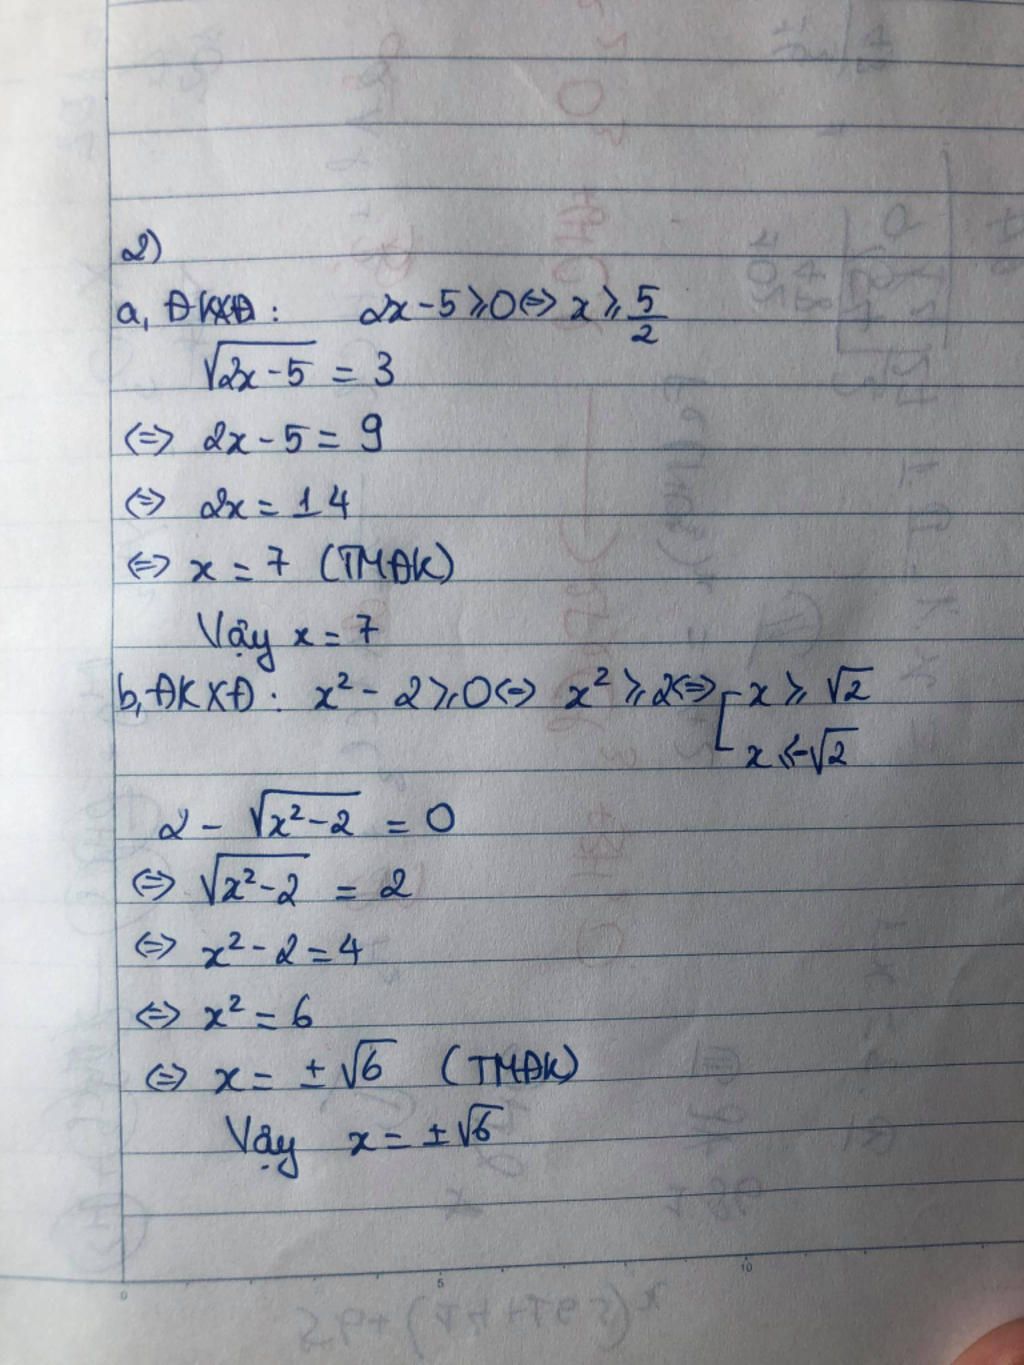 2)
a, ĐKXĐ : 2x - 5 ⩾ 0 <=> x ⩾ 5/2
√(2x - 5) = 3
<=> 2x - 5 = 9
<=> 2x = 14
<=> x = 7 (TMĐK)
Vậy x = 7
b, ĐKXĐ : x² - 2 ⩾ 0 <=> x² ⩾ 2 <=> [ x ⩾ √2
x ⩽ -√2
2 - √(x² - 2) = 0
<=> √(x² - 2) = 2
<=> x² - 2 = 4
<=> x² = 6
<=> x = ±√6 (TMĐK)
Vậy x = ±√6
0 5 10